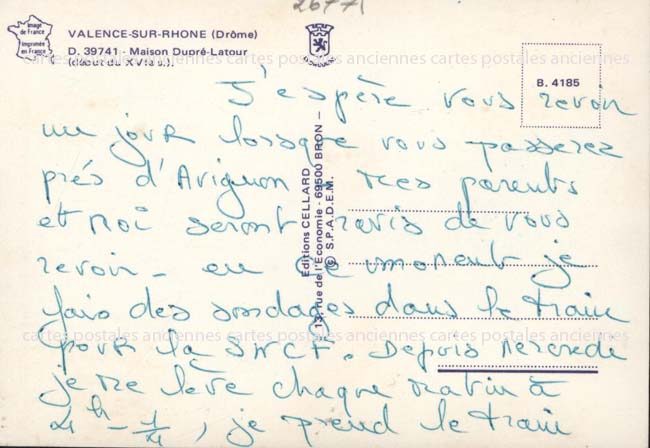 26771
Image
de France
Imprimée
en France
VALENCE-SUR-RHONE (Drôme)
D. 39741 - Maison Dupré-Latour
(début du XVIe s.).
B. 4185
Editions CELLARD
13, rue de l'Economie - 69500 BRON -
© S.P.A.D.E.M.
cartes postales anciennes cartes postales anciennes cartes postales anciennes
J'espère vous revoir
un jour lorsque vous passerez
près d'Avignon - mes parents
et moi seront ravis de vous
revoir - en ce moment je
fais des sondages dans le train
cartes postales anciennes cartes postales anciennes cartes postales anciennes
pour la SNCF. Depuis Mercredi
je me lève chaque matin à
4h - 1/4, je prend le train